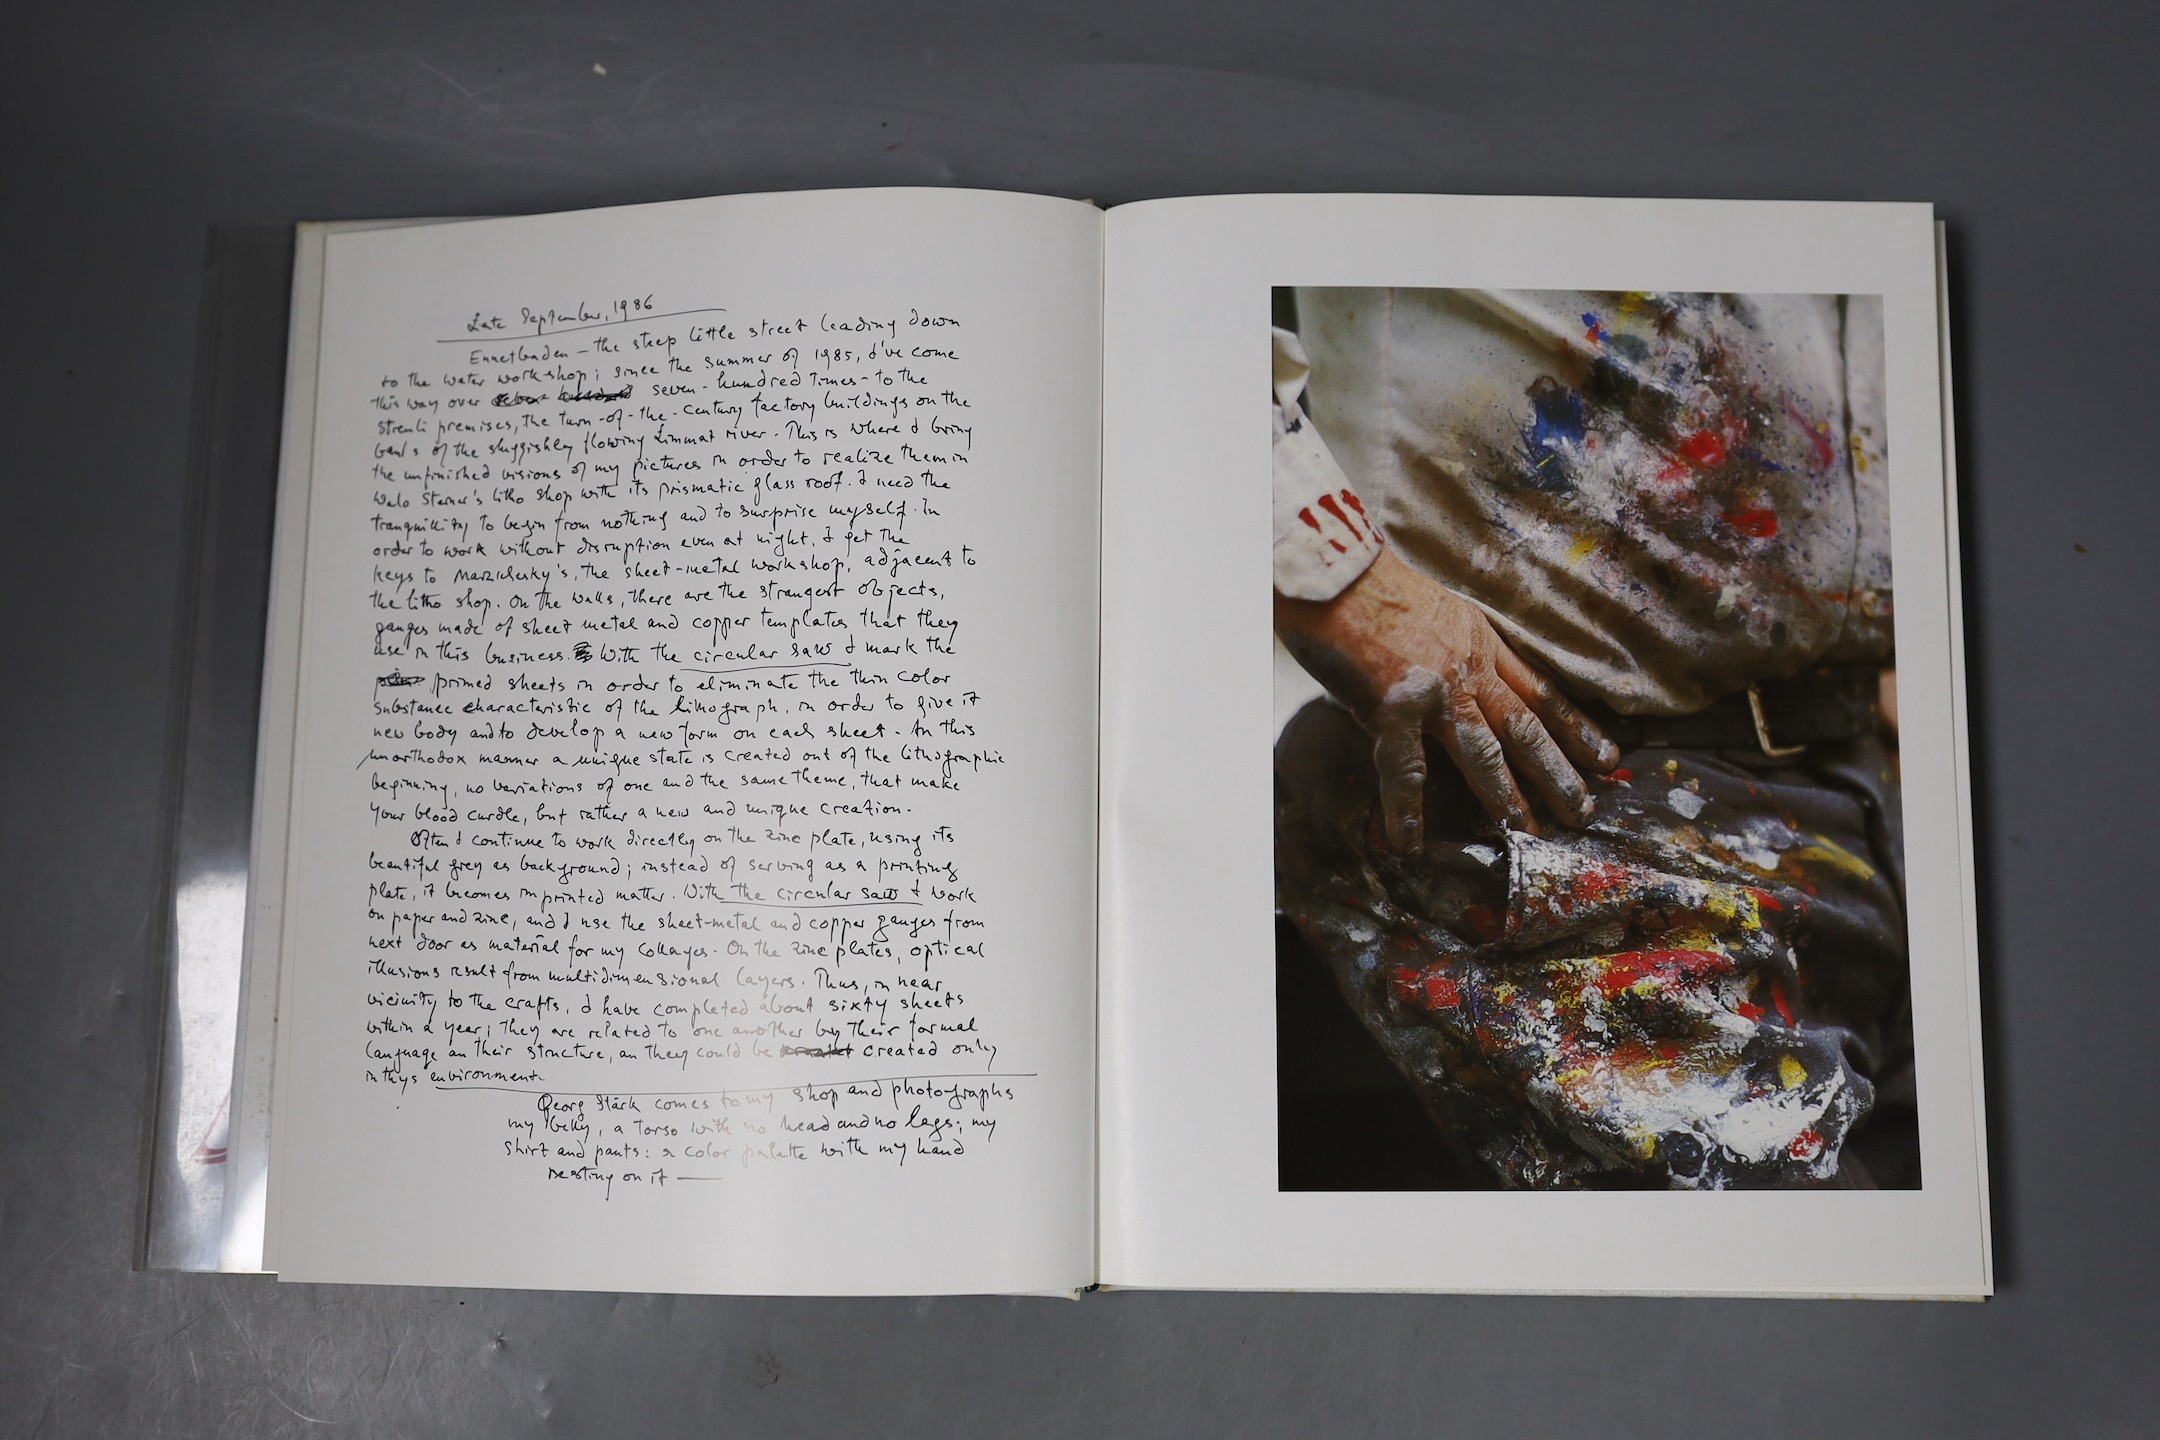 Late September, 1986
Ennetbaden – the steep little street leading down
to the water workshop; since the summer of 1985, I've come
this way over seven-hundred times – to the
Streuli premises, the turn-of-the-century factory buildings on the
banks of the sluggishly flowing Limmat river. This is where I bring
the unfinished visions of my pictures in order to realize them in
Walo Steiner's litho shop with its prismatic glass roof. I need the
tranquillity to begin from nothing and to surprise myself. In
order to work without disruption even at night, I get the
keys to, the sheet-metal workshop, adjacent to
the litho shop. On the walls, there are the strangest objects,
gauges made of sheet metal and copper templates that they
use in this business. With the circular saw I mark the
primed sheets in order to eliminate the thin color
substance characteristic of the lithograph, in order to give it
new body and to develop a new form on each sheet. In this
unorthodox manner a unique state is created out of the lithographic
beginning, no variations of one and the same theme, that make
your blood curdle, but rather a new and unique creation.
Often I continue to work directly on the zinc plate, using its
beautiful grey as background; instead of serving as a printing
plate, it becomes imprinted matter. With the circular saw I work
on paper and zinc, and I use the sheet-metal and copper gauges from
next door as material for my collages. On the zinc plates, optical
illusions result from multidimensional layers. Thus, in near
vicinity to the crafts, I have completed about sixty sheets
within a year; they are related to one another by their formal
language an their structure, an they could be created only
in thys environment.
Georg Stärk comes to my shop and photographs
my belly, a torso with no head and no legs; my
shirt and pants: a color palette with my hand
resting on it —